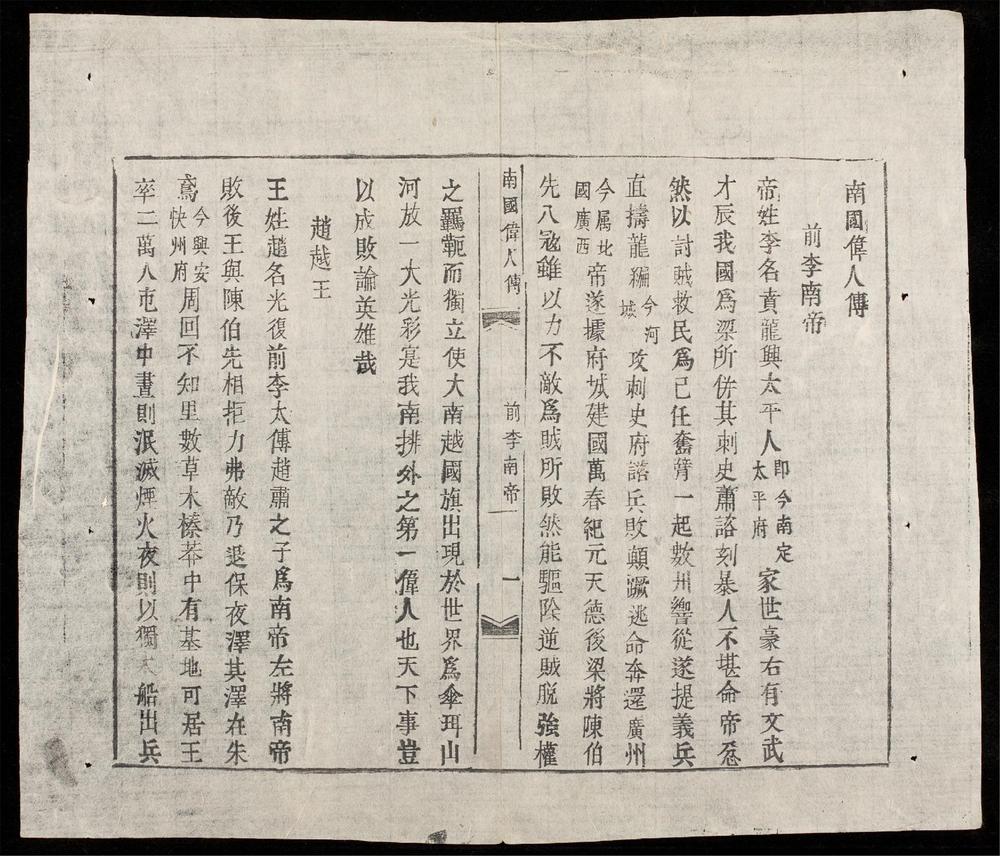 南國偉人傳
前李南帝
帝姓李名賁龍興太平人即今南定太平府家世豪右有文武
才辰我國爲梁所併其刺史蕭諮刻暴人不堪命帝忿
然以討賊救民爲己任奮臂一起數州響從遂提義兵
直擣龍編今河城攻刺史府諮兵敗顛蹶逃命奔還廣州
今属北國廣西帝遂據府城建國萬春紀元天德後梁將陳伯
先入冦雖以力不敵爲賊所敗然能驅除逆賊脫強權
南國偉人傳
前李南帝
一
之羈軛而獨立使大南越國旗出現於世界爲傘珥山
河放一大光彩寔我南排外之第一偉人也天下事豈
以成敗論英雄哉
趙越王
王姓趙名光復前李太傅趙肅之子爲南帝左將南帝
敗後王與陳伯先相拒力弗敵乃退保夜澤其澤在朱
鳶今興安快州府周回不知里數草木榛莽中有基地可居王
卒二萬人屯澤中晝則泯滅煙火夜則以獨木船出兵